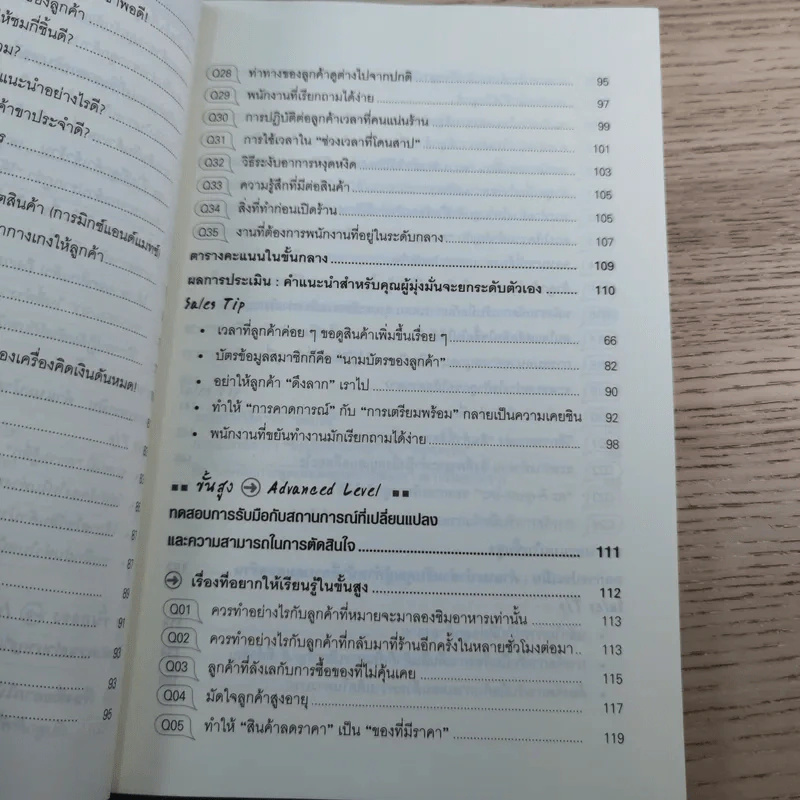 องลูกค้า
ให้ชมกี่ชิ้นดี?
แนะนำอย่างไรดี?
ค้าขาประจำดี?
ตสินค้า (การมิกซ์แอนด์แมทช์)
ากางเกงให้ลูกค้า
องเครื่องคิดเงินดันหมด!
87
89
91
93
93
95
Q28 ท่าทางของลูกค้าดูต่างไปจากปกติ 95
Q29 พนักงานที่เรียกถามได้ง่าย 97
Q30 การปฏิบัติต่อลูกค้าเวลาที่คนแน่นร้าน 99
Q31 การใช้เวลาใน “ช่วงเวลาที่โดนสาป” 101
Q32 วิธีระงับอาการหงุดหงิด 103
Q33 ความรู้สึกที่มีต่อสินค้า 105
Q34 สิ่งที่ทำก่อนเปิดร้าน 105
Q35 งานที่ต้องการพนักงานที่อยู่ในระดับกลาง 107
ตารางคะแนนในขั้นกลาง 109
ผลการประเมิน : คำแนะนำสำหรับคุณผู้มุ่งมั่นจะยกระดับตัวเอง 110
Sales Tip
• เวลาที่ลูกค้าค่อย ๆ ขอดูสินค้าเพิ่มขึ้นเรื่อย ๆ 66
• บัตรข้อมูลสมาชิกก็คือ “นามบัตรของลูกค้า” 82
• อย่าให้ลูกค้า “ดึงลาก” เราไป 90
• ทำให้ “การคาดการณ์” กับ “การเตรียมพร้อม” กลายเป็นความเคยชิน 92
• พนักงานที่ขยันทำงานมักเรียกถามได้ง่าย 98
ขั้นสูง → Advanced Level
ทดสอบการรับมือกับสถานการณ์ที่เปลี่ยนแปลง
และความสามารถในการตัดสินใจ 111
→ เรื่องที่อยากให้เรียนรู้ในขั้นสูง 112
Q01 ควรทำอย่างไรกับลูกค้าที่หมายจะมาลองชิมอาหารเท่านั้น 113
Q02 ควรทำอย่างไรกับลูกค้าที่กลับมาที่ร้านอีกครั้งในหลายชั่วโมงต่อมา 113
Q03 ลูกค้าที่ลังเลกับการซื้อของที่ไม่คุ้นเคย 115
Q04 มัดใจลูกค้าสูงอายุ 117
Q05 ทำให้ “สินค้าลดราคา” เป็น “ของที่มีราคา” 119